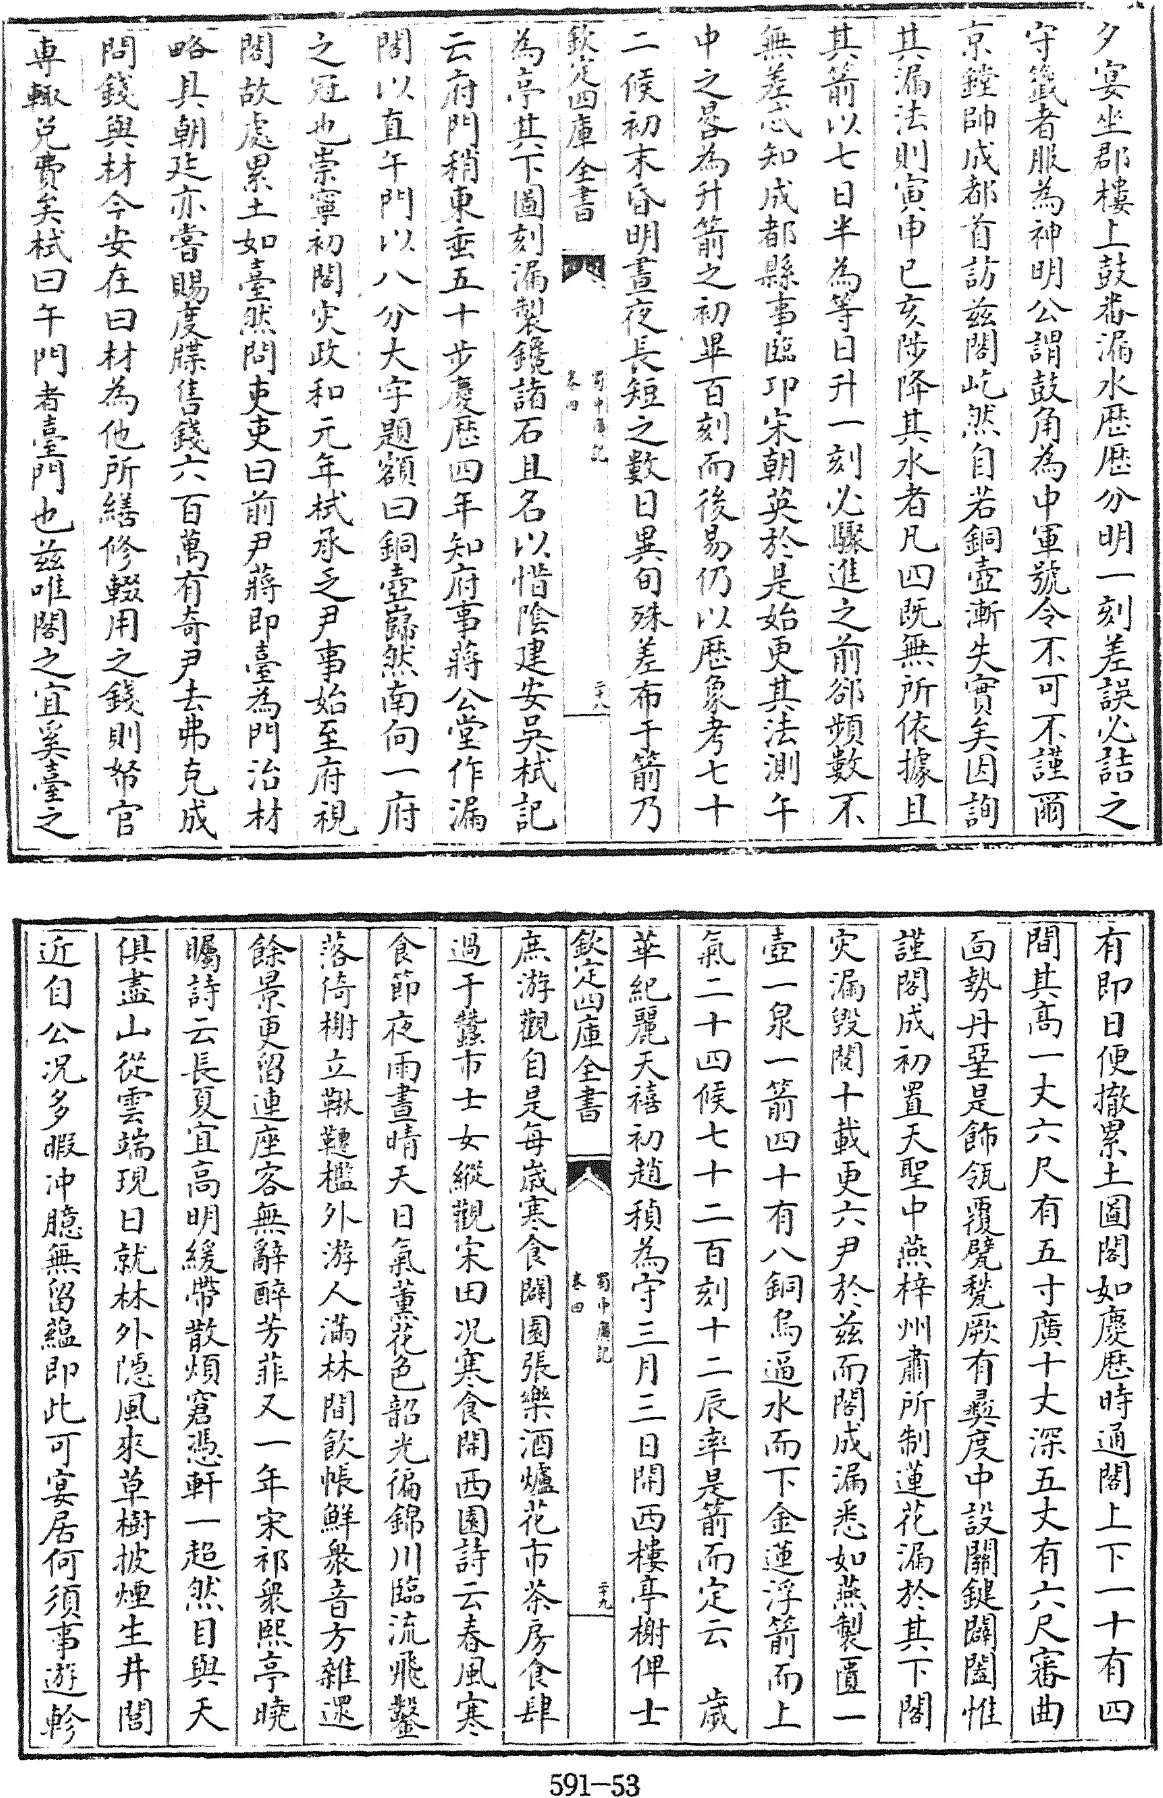 夕宴坐郡樓上鼓畨漏水歴歴分明一刻差誤必詰之
守籤者服為神明公謂鼓角為中軍號令不可不謹爾
京鏜帥成都首訪兹閣屹然自若銅壺漸失實矣因詢
其漏法則寅申巳亥陟降其水者凡四既無所依據且
其箭以七日半為等日升一刻必驟進之前郤頻數不
無差忒知成都縣事臨邛宋朝英於是始更其法測午
中之晷為升箭之初畢百刻而後易仍以歴象考七十
二候初末昏明晝夜長短之數日異旬殊差布于箭乃
欽定四庫全書
蜀中廣記
卷四
二十八
為亭其下圖刻漏製鑱諸石且名以惜陰建安吳栻記
云府門稍東垂五十步慶歴四年知府事蔣公堂作漏
閣以直午門以八分大字題額曰銅壺巋然南向一府
之冠也崇寧初閣灾政和元年栻承乏尹事始至府視
閣故處累土如臺然問吏吏曰前尹蔣即臺為門治材
略具朝廷亦嘗賜度牒售錢六百萬有奇尹去弗克成
問錢與材今安在曰材為他所繕修輟用之錢則帑官
専輙兑費矣栻曰午門者臺門也兹唯閣之宜奚臺之
有即日便撤累土圖閣如慶歴時通閣上下一十有四
間其髙一丈六尺有五寸廣十丈深五丈有六尺審曲
面勢丹堊是飾瓴覆甓甃厥有彛度中設關鍵闢闔惟
謹閣成初置天聖中燕梓州肅所制蓮花漏於其下閣
灾漏毀閲十載更六尹於兹而閣成漏悉如燕製匱一
壺一泉一箭四十有八銅烏逼水而下金蓮浮箭而上
氣二十四候七十二百刻十二辰率是箭而定云　歲
華紀麗天禧初趙稹為守三月三日開西樓亭榭俾士
欽定四庫全書
蜀中廣記
卷四
二十九
庶游觀自是每歲寒食闢園張樂酒壚花市茶房食肆
過于蠶市士女縱觀宋田况寒食開西園詩云春風寒
食節夜雨晝晴天日氣薫花色韶光徧錦川臨流飛鑿
落倚榭立鞦韆檻外游人滿林間飲帳鮮衆音方雜遝
餘景更留連座客無辭醉芳菲又一年宋祁衆熙亭曉
矚詩云長夏宜高明緩帶散煩窘憑軒一超然目與天
俱盡山從雲端現日就林外隱風來草樹披煙生井閭
近自公况多暇冲臆無留蘊即此可宴居何須事遊軫
591-53